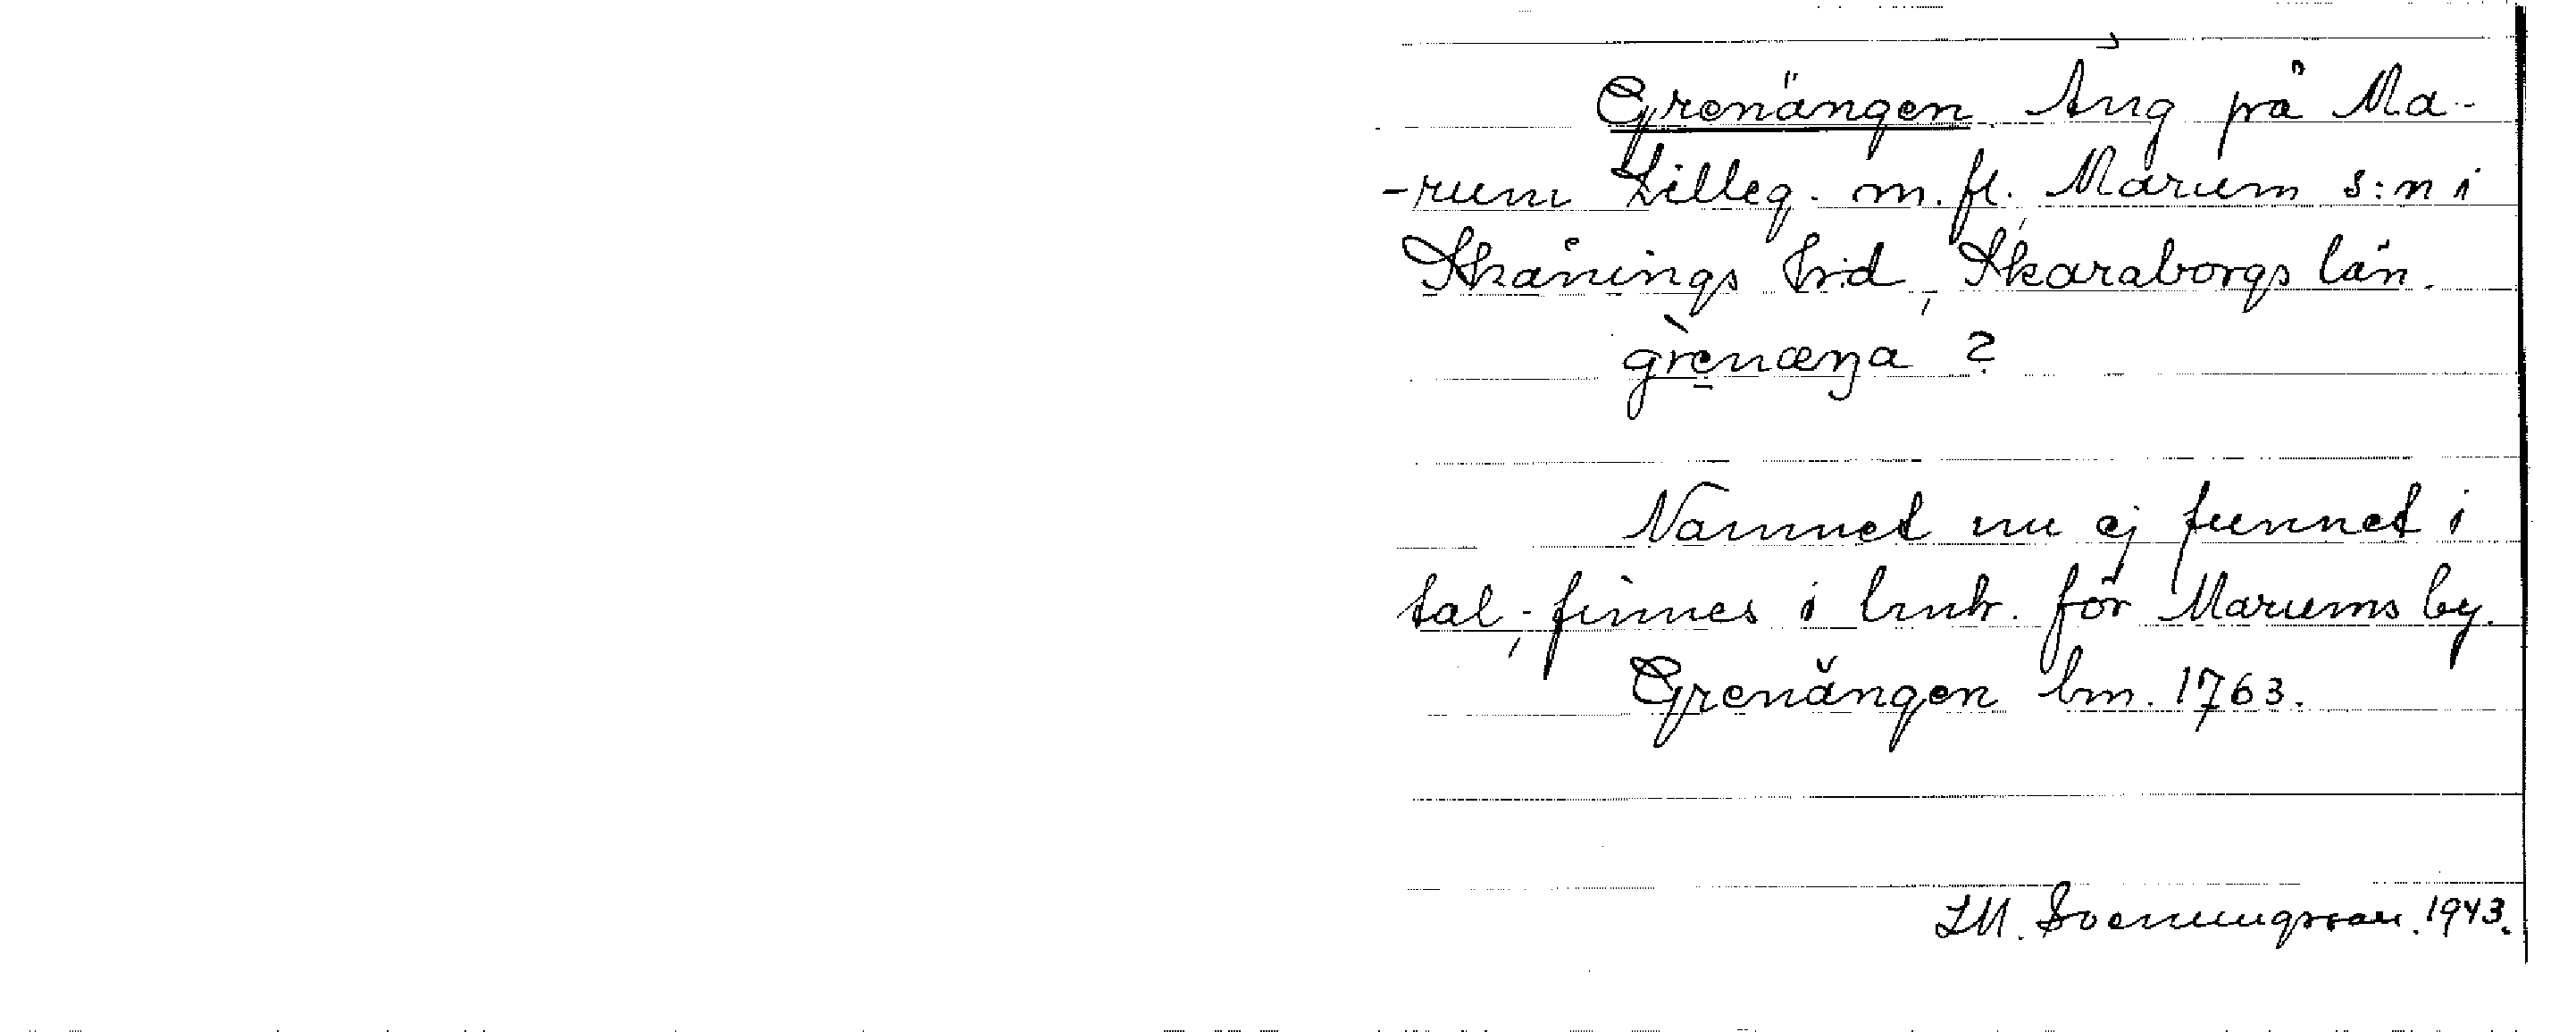 Grenängen. Äng på Ma-
-rum Lilleg. m. fl., Marum s:n i
Skånings hd, Skaraborgs län.
grènæŋa ?
Namnet nu ej funnet i
tal, finnes i lmh. för Marums by.
Grenängen lm. 1763.
I.M. Svenungsson. 1943.